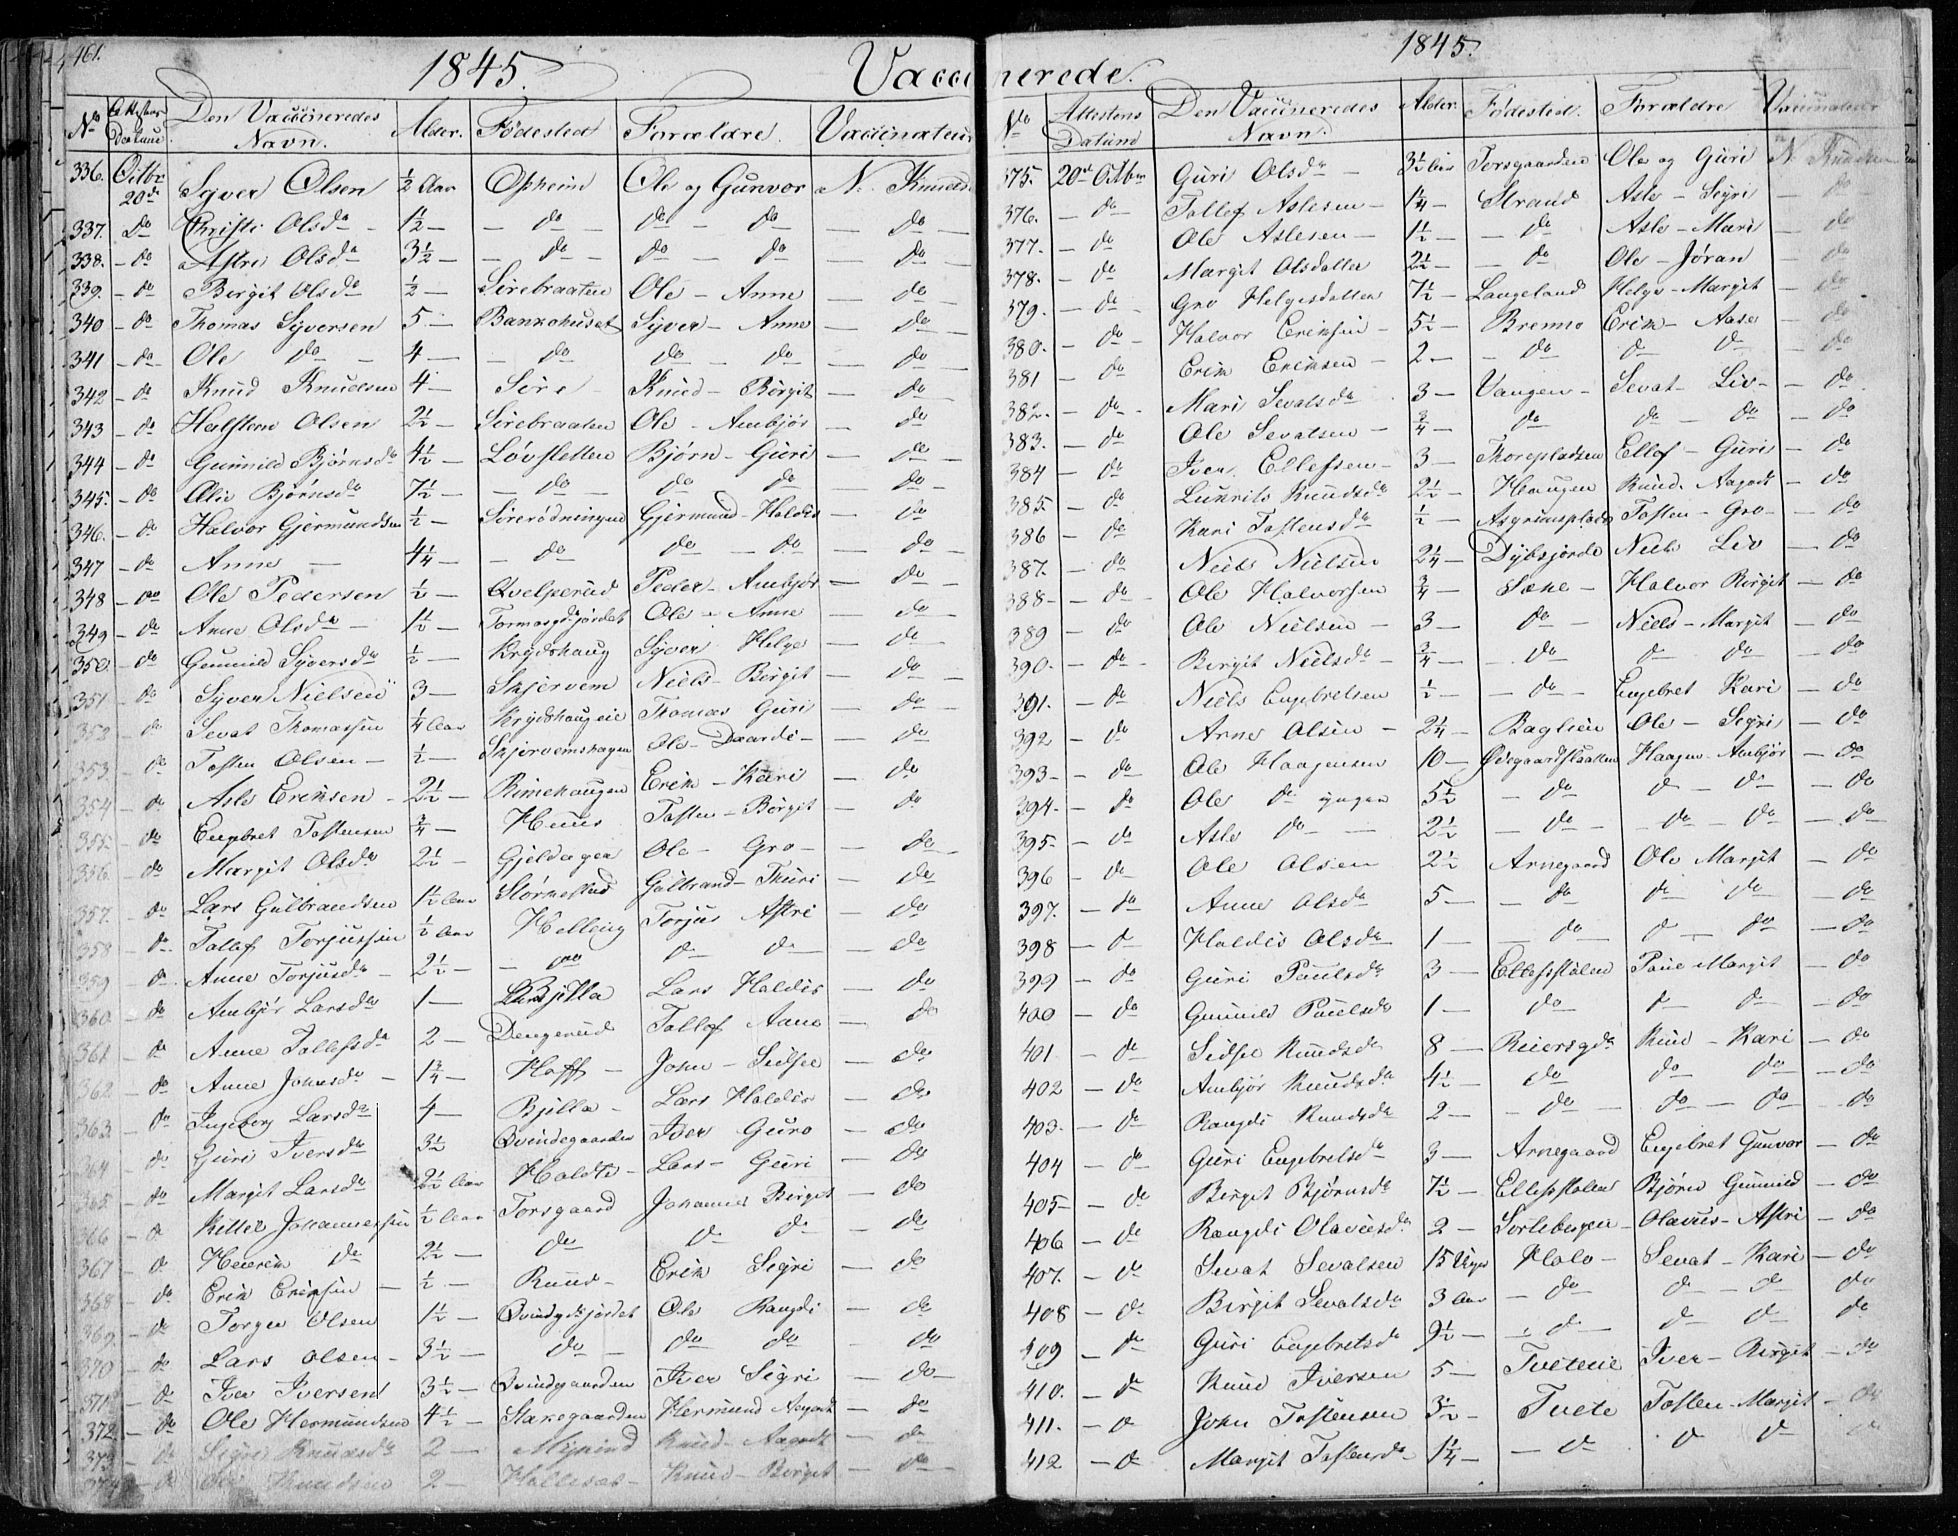 461.
1845.
Vaccinerede.
1845.
No | Attestens Datum | Den Vaccineredes Navn. | Alder. | Fødested | Forældre. | Vaccinateur
336. | Octbr 20de | Syver Olsen | ½ Aar | Opheim | Ole og Gunvor | N. Knudsen
337. | do | Christi Olsda | 1½ | do | do do | do
338. | do | Astri Olsda | 3½ | do | do do | do
339. | do | Birgit Olsda | ½ | Sirebraaten | Ole - Anne | do
340 | do | Thomas Syversen | 5 | Bankohuset | Syver - Anne | do
341 | do | Ole do | 4 | do | do do | do
342 | do | Knud Knudsen | 4 | Sire | Knud - Birgit | do
343 | do | Halsten Olsen | 2½ | Sirebraaten | Ole - Ambjør | do
344 | do | Gunnild Bjørnsda | 4½ | Løvsletten | Bjørn - Guri | do
345. | do | Olie Bjørnsda | 7½ | do | do do | do
346. | do | Halvor Gjermundsen | ½ | Sirerødningen | Gjermund - Haldis | do
347 | do | Anne | 4¼ | do | do do | do
348 | do | Ole Pedersen | ½ | Qvelperud | Peder - Ambjør | do
349 | do | Anne Olsda | 1½ | Tormosgdsjordet | Ole - Anne | do
350. | do | Gunnild Syversda | ½ | Krydshaug | Syver Helge | do
351 | do | Syver Nielsen | 3 | Skjervem | Niels - Birgit | do
352 | do | Sevat Thomassen | ¼ Aar | Krydshaugeie | Thomas Guri | do
353. | do | Tosten Olsen | ½ | Skjervemshagen | Ole - Daardi | do
354 | do | Asle Eriksen | 2½ | Rimehaugen | Erik - Kari | do
355. | do | Engebret Tostensen | ¾ | Huus | Tosten - Birgit | do
356. | do | Margit Olsda | 2½ | Gjeldager | Ole - Gro | do
357. | do | Lars Gulbrandsen | 1½ Aar | Størkestad | Gulbrand - Thuri | do
358 | do | Tollef Torjussen | ½ Aar | Helling | Torjus Astri | do
359 | do | Anne Torjusda | 2½ | do | do do | do
360. | do | Ambjør Larsda | 1 | Bjella | Lars Haldis | do
361 | do | Anne Tollefsda | 2 | Dengerud | Tollef Aano | do
362 | do | Anne Johnsda | 1¾ | Hoff | John - Sidsel | do
363. | do | Ingeborg Larsda | 4 | Bjella | Lars Haldis | do
364 | do | Guri Iversda | 3½ | Qvindegaarden | Iver Guro | do
365 | do | Margit Larsda | 2½ Aar | Holdt | Lars - Guri | do
366 | do | Kittel Johannessen | ½ Aar | Torsgaard | Johannes Birgit | do
367 | do | Heierik do | 2½ | do | do do | do
368 | do | Erik Eriksen | ½ | Ruud | Erik Sigri | do
369 | do | Torger Olsen | 1½ | Qvindgdsjordet | Ole Rangdi | do
370 | do | Lars Olsen | 3½ | do | do do | do
371 | do | Iver Iversen | 3½ | Qvindegaarden | Iver Sigri | do
372 | do | Ole Hermundsen | 4½ | Stakegaarden | Hermund Aagodt | do
373 | do | Sigri Knudsda | 2 | Myrind | Knud - Aagodt | do
374 | do | Knudsen | 2 | Hallesat | Knud - Birgit | do
No | Attestens Datum | Den Vaccineredes Navn. | Alder. | Fødested. | Forældre | Vaccinateur
375. | 20de Octbr | Guri Olsda | 3½ Aar | Torsgaarden | Ole og Guri | N. Knudsen
376. | do | Tollef Aslesen | 1¼ | Strand | Asle - Sigri | do
377. | do | Ole Aslesen | 1½ | do | Asle - Mari | do
378. | do | Margit Olsdatter | 2½ | do | Ole - Jøran | do
379. | do | Gro Helgesdatter | 7½ | Langeland | Helge - Margit | do
380. | do | Halvor Eriksen | 5½ | Brenno | Erik - Aase | do
381 | do | Erik Eriksen | 2 | do | do do | do
382. | do | Mari Sevatsda | 3 | Vangen | Sevat - Liv | do
383. | do | Ole Sevatsen | ¾ | do | do do | do
384 | do | Iver Ellefsen | 3 | Thorepladsen | Ellef - Guri | do
385. | do | Lukrits Knudsda | 2½ | Haugen | Knud. Aagodt | do
386 | do | Kari Tostensda | ½ | Asgrimsplads | Tosten - Gro | do
387. | do | Niels Nielsen | 2¼ | Dybsjorde | Niels Liv | do
388 | do | Ole Halvorsen | ¾ | Sæke | Halvor Birgit | do
389 | do | Ole Nielsen | 3 | do | Niels - Margit | do
390. | do | Birgit Nielsda | ¾ | do | do do | do
391. | do | Niels Engebretsen | ½ | do | Engebret Kari | do
392 | do | Arne Olsen | 2¼ | Baglien | Ole - Sigri | do
393 | do | Ole Haagensen | 10 | Ødegaardslaatten | Haagen - Ambjør | do
394. | do | Ole do yngre | 5½ | do | do do | do
395. | do | Asle do | 2½ | do | do do | do
396 | do | Ole Olsen | 2½ | Arnegaard | Ole Margit | do
397. | do | Anne Olsda | 5 | do | do do | do
398 | do | Haldis Olsda | 1 | do | do do | do
399 | do | Guri Paulsda | 3 | Ellefsstølen | Paul Margit | do
400 | do | Gunnild Paulsda | 1 | do | do do | do
401 | do | Sidsel Knudsda | 8 | Reiersgda | Knud - Kari | do
402 | do | Ambjør Knudsda | 4½ | do | do do | do
403. | do | Rangdi Knudsda | 2 | do | do do | do
404 | do | Guri Engebretsda | 3 | Arnegaard | Engebret Gunvor | do
405 | do | Birgit Bjørnsda | 7½ | Ellefsstølen | Bjørn Gunnild | do
406 | do | Rangdi Olavusda | 2 | Sorteberget | Olavus - Astri | do
407. | do | Sevat Sevatsen | 15 Uger | Holo | Sevat - Kari | do
408 | do | Birgit Sevatsda | 3 Aar | do | do do | do
409 | do | Guri Engebretsd | 9½ | do | do do | do
410. | do | Knud Iversen | 5 | Tveteie | Iver - Birgit | do
411. | do | John Tostensen | 3½ | Tvete | Tosten - Margit | do
412 | do | Margit Tostensda | 1¼ | do | do do | do